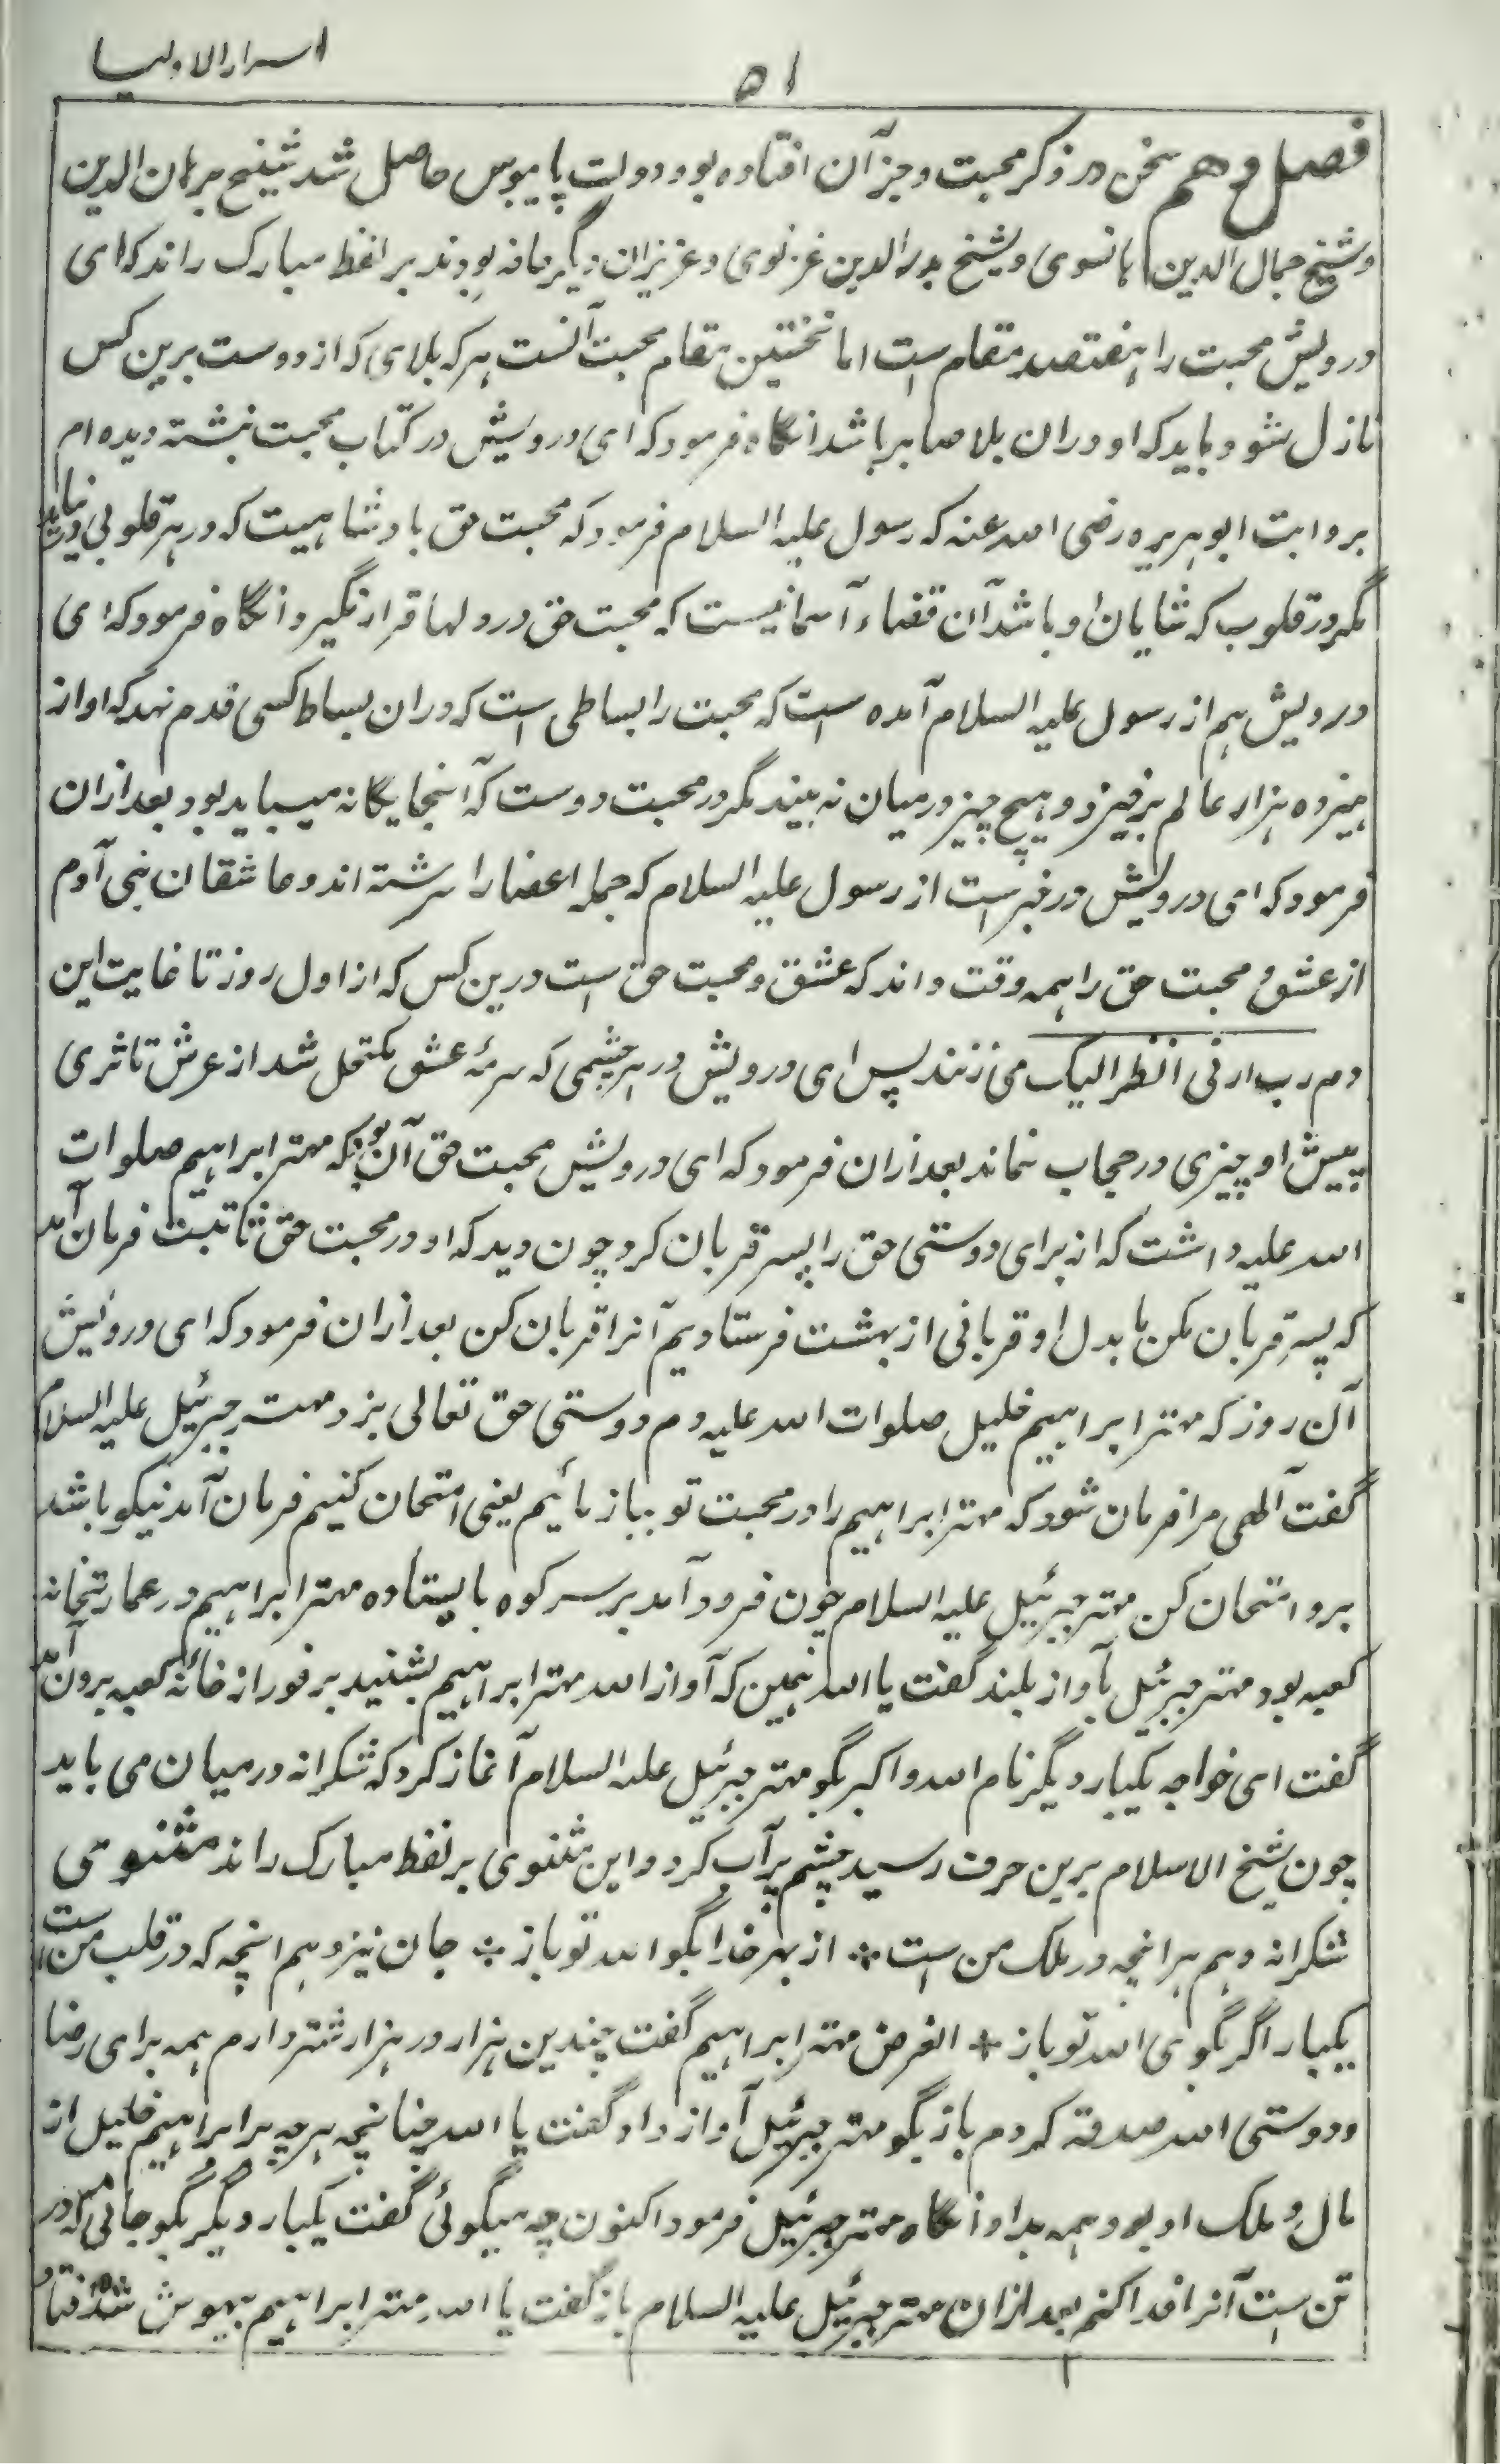 اسرارالاولیا
۵۱
فصل دهم سخن در ذکر محبت و جز آن افتاده بود دولت پایبوس حاصل شد شیخ برهان الدین
و شیخ جمال الدین هانسوی و شیخ بدرالدین غزنوی و عزیزان دیگر مانه بودند بر لفظ مبارک راند که ای
درویش محبت را هفتصد مقام ست اما نخستین مقام محبت آنست هر که بلای که از دوست برین کس
نازل شود باید که او دران بلا صابر باشد انگاه فرمود که ای درویش در کتاب محبت نبشته دیده ام
بروایت ابو هریره رضی الله عنه که رسول علیه السلام فرمود که محبت حق بادشاهیست که در هر قلوبی فرو نیاید
مگر در قلوب که شایان او باشد آن قضاء آسمانیست که محبت حق در دلها قرار نگیرد انگاه فرمود که ای
درویش هم از رسول علیه السلام آمده ست که محبت را بساطی است که دران بساط کسی قدم نهد که او از
هیزده هزار عالم برخیزد و هیچ چیز در میان نه بیند مگر در محبت دوست که آنجا یگانه میباید بود بعد ازان
فرمود که ای درویش در خبر ست از رسول علیه السلام که جمله اعضا را سرشته اند و عاشقان بنی آدم
از عشق و محبت حق را همه وقت داند که عشق و محبت حق است درین کس که از اول روز تا غایت این
دم رب ارنی انظر الیک می زنند پس ای درویش در هر چشمی که سرمهٔ عشق مکتحل شد از عرش تا ثری
پیش او چیزی در حجاب نماند بعد ازان فرمود که ای درویش محبت حق آن بود که مهتر ابراهیم صلوات
الله علیه داشت که از برای دوستی حق را پسر قربان کرد چون دید که او در محبت حق ثابتست فرمان آمد
که پسر قربان مکن ما بدل او قربانی از بهشت فرستادیم آنرا قربان کن بعد ازان فرمود که ای درویش
آن روز که مهتر ابراهیم خلیل صلوات الله علیه دم دوستی حق تعالی بزد مهتر جبرئیل علیه السلام
گفت الٓهی مرا فرمان شود که مهتر ابراهیم را در محبت تو بیازمائیم یعنی امتحان کنیم فرمان آمد نیکو باشد
برو امتحان کن مهتر جبرئیل علیه السلام چون فرود آمد بر سر کوه بایستاده مهتر ابراهیم در عمارتخانه
کعبه بود مهتر جبرئیل بآواز بلند گفت یا الله همین که آواز الله مهتر ابراهیم بشنید بر فور از خانهٔ کعبه برون آمد
گفت ای خواجه یکبار دیگر نام الله و اکبر بگو مهتر جبرئیل علیه السلام آغاز کرد که شکرانه در میان می باید
چون شیخ الاسلام برین حرف رسید چشم پرآب کرد و این مثنوی بر لفظ مبارک راند مثنوی
شکرانه دهم هر انچه در ملک من ست * از بهر خدا بگو الله تو باز * جان نیز دهم انچه که در قلب من ست
یکبار اگر بگوی الله تو باز * الغرض مهتر ابراهیم گفت چندین هزار در هزار شتر دارم همه برای رضا
و دوستی الله صدقه کردم باز بگو مهتر جبرئیل آواز داد گفت یا الله چنانچه هر چه برابر ابراهیم خلیل از
مال و ملک او بود همه بداد انگاه مهتر جبرئیل فرمود اکنون چه میگوئی گفت یکبار دیگر بگو جانی که در
تن ست آنرا فدا کنم بعد ازان مهتر جبرئیل علیه السلام باز گفت یا الله مهتر ابراهیم بیهوش شد و فتاد